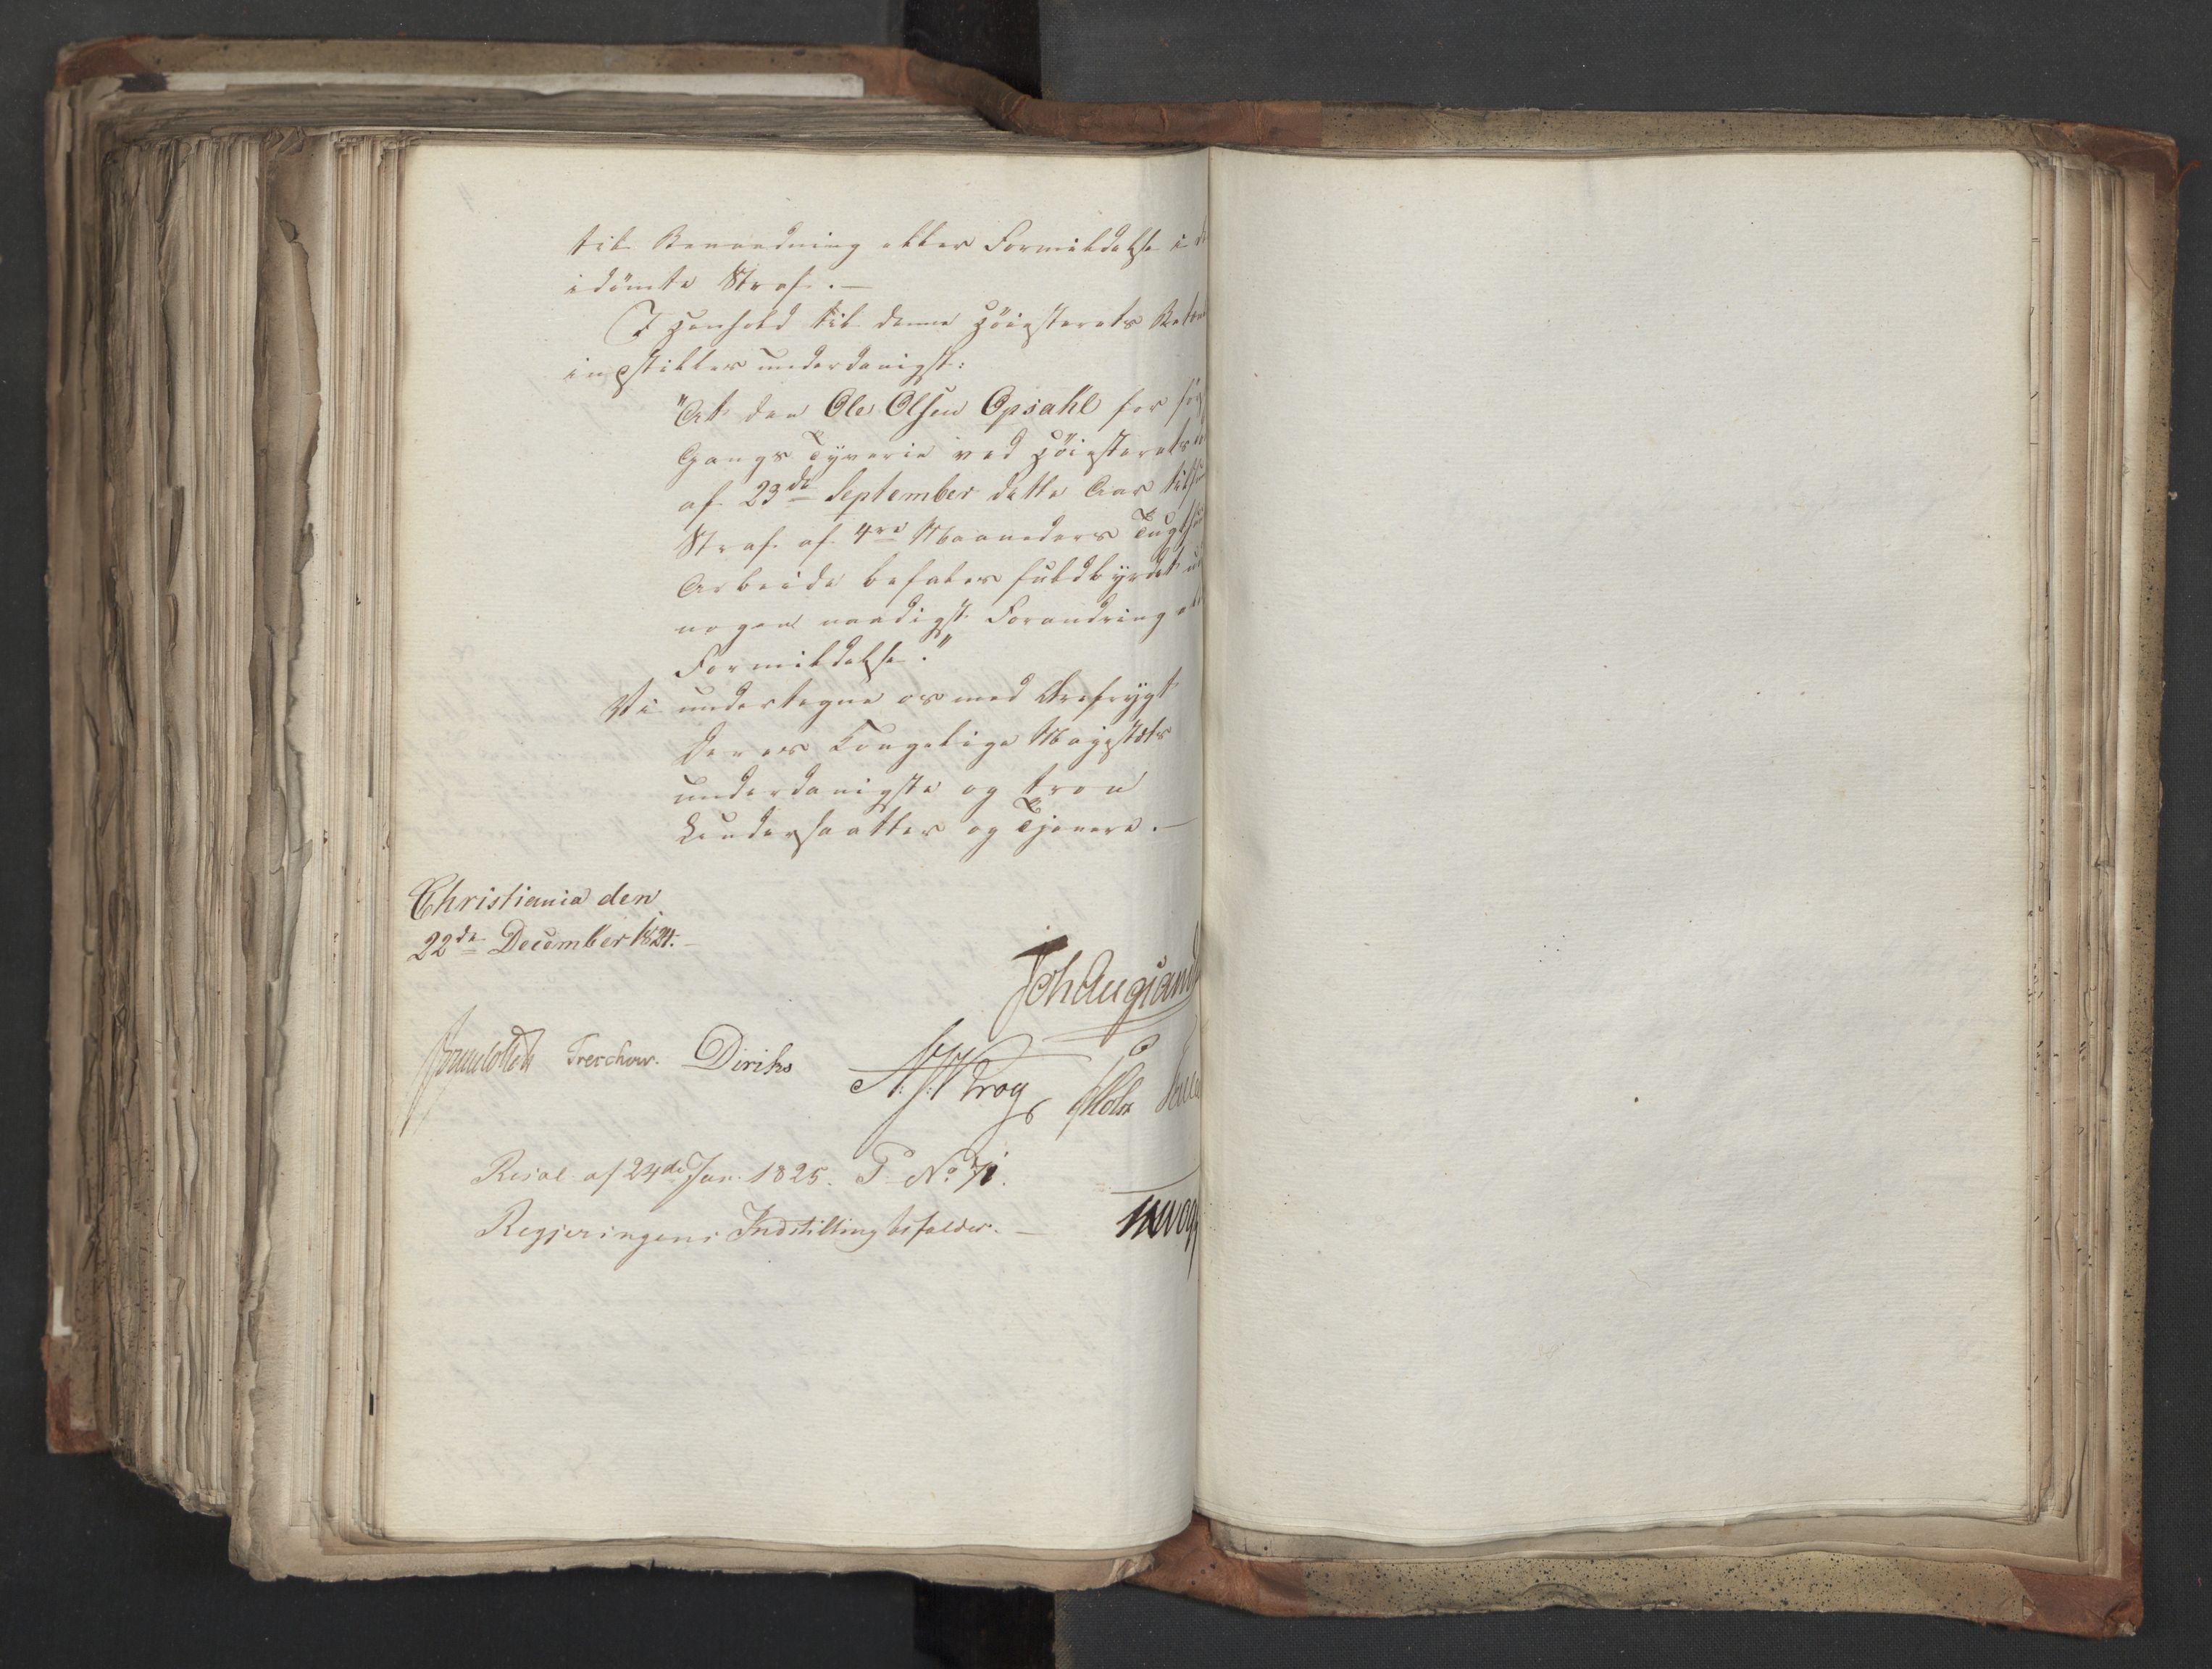 til Benaadning eller Formildelse i
idömte Straf. —
I Henhold til denne Höiesterets
indstilles underdanigst:
"At den Ole Olsen Opsahl for
Gangs Tyverie ved Höiesterets
af 23de September dette Aar
Straf af 4re Maaneders
Arbeide befales fuldbyrdet
nogen naadigst Forandring
Formildelse."
Vi undertegne os med Ærefrygt
Deres Kongelige Majestæts
underdanigste og troe
Undersaatter og Tjenere. —
Christiania den
22de December 1824.
Treschow. Diriks
Resol. af 24de Jan. 1825. P. No 71.
Regjeringens Indstilling bifaldes. —